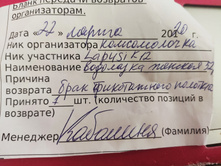 Бланк передачи возвратов
организаторам.
Дата «27» марта 2020 г.
Ник организатора Комсомолочка
Ник участника Lapusik12
Наименование Водолазка женская
Причина
возврата брак трикотажного полотна
Принято 1 шт. (количество позиций в
возврате)
Менеджер (Фамилия)